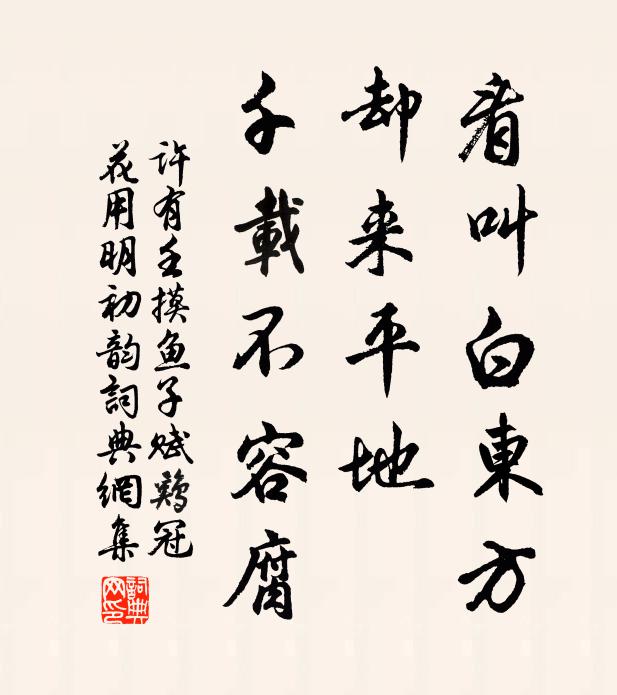 看叫白東方
却来平地
千載不容腐
許有壬摸魚子賦鷄冠
花用明初韵詞典網集
詞典網印